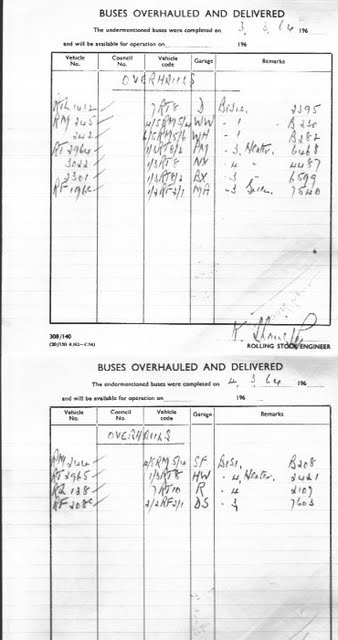 BUSES OVERHAULED AND DELIVERED
The undermentioned buses were completed on 3. 3. 64 196
and will be available for operation on 196
Vehicle No. Council No. Vehicle code Garage Remarks
OVERHAULS
1412 7RT8 D Bodies, 2395
RM 245 4/5RM5/4 WW - 1 B230
242 6/5RM5/6 WH - 1 B282
RT 2964 PM - 3, Heater, 6468
3022 1/3RT8 NX - 4 4487
2301 BX - 3 6599
RF 196c 1/2RF2/1 MA - 3 7540
308/140
ROLLING STOCK ENGINEER
BUSES OVERHAULED AND DELIVERED
The undermentioned buses were completed on 4. 3. 64 196
and will be available for operation on 196
Vehicle No. Council No. Vehicle code Garage Remarks
OVERHAULS
RM 244 4/5RM5/4 SF B208
RT 2965 1/3RT8 HW - 4, Heater, 2421
138 7RT10 R - 4 2109
RF 208c 2/2RF2/1 DS - 3 7603